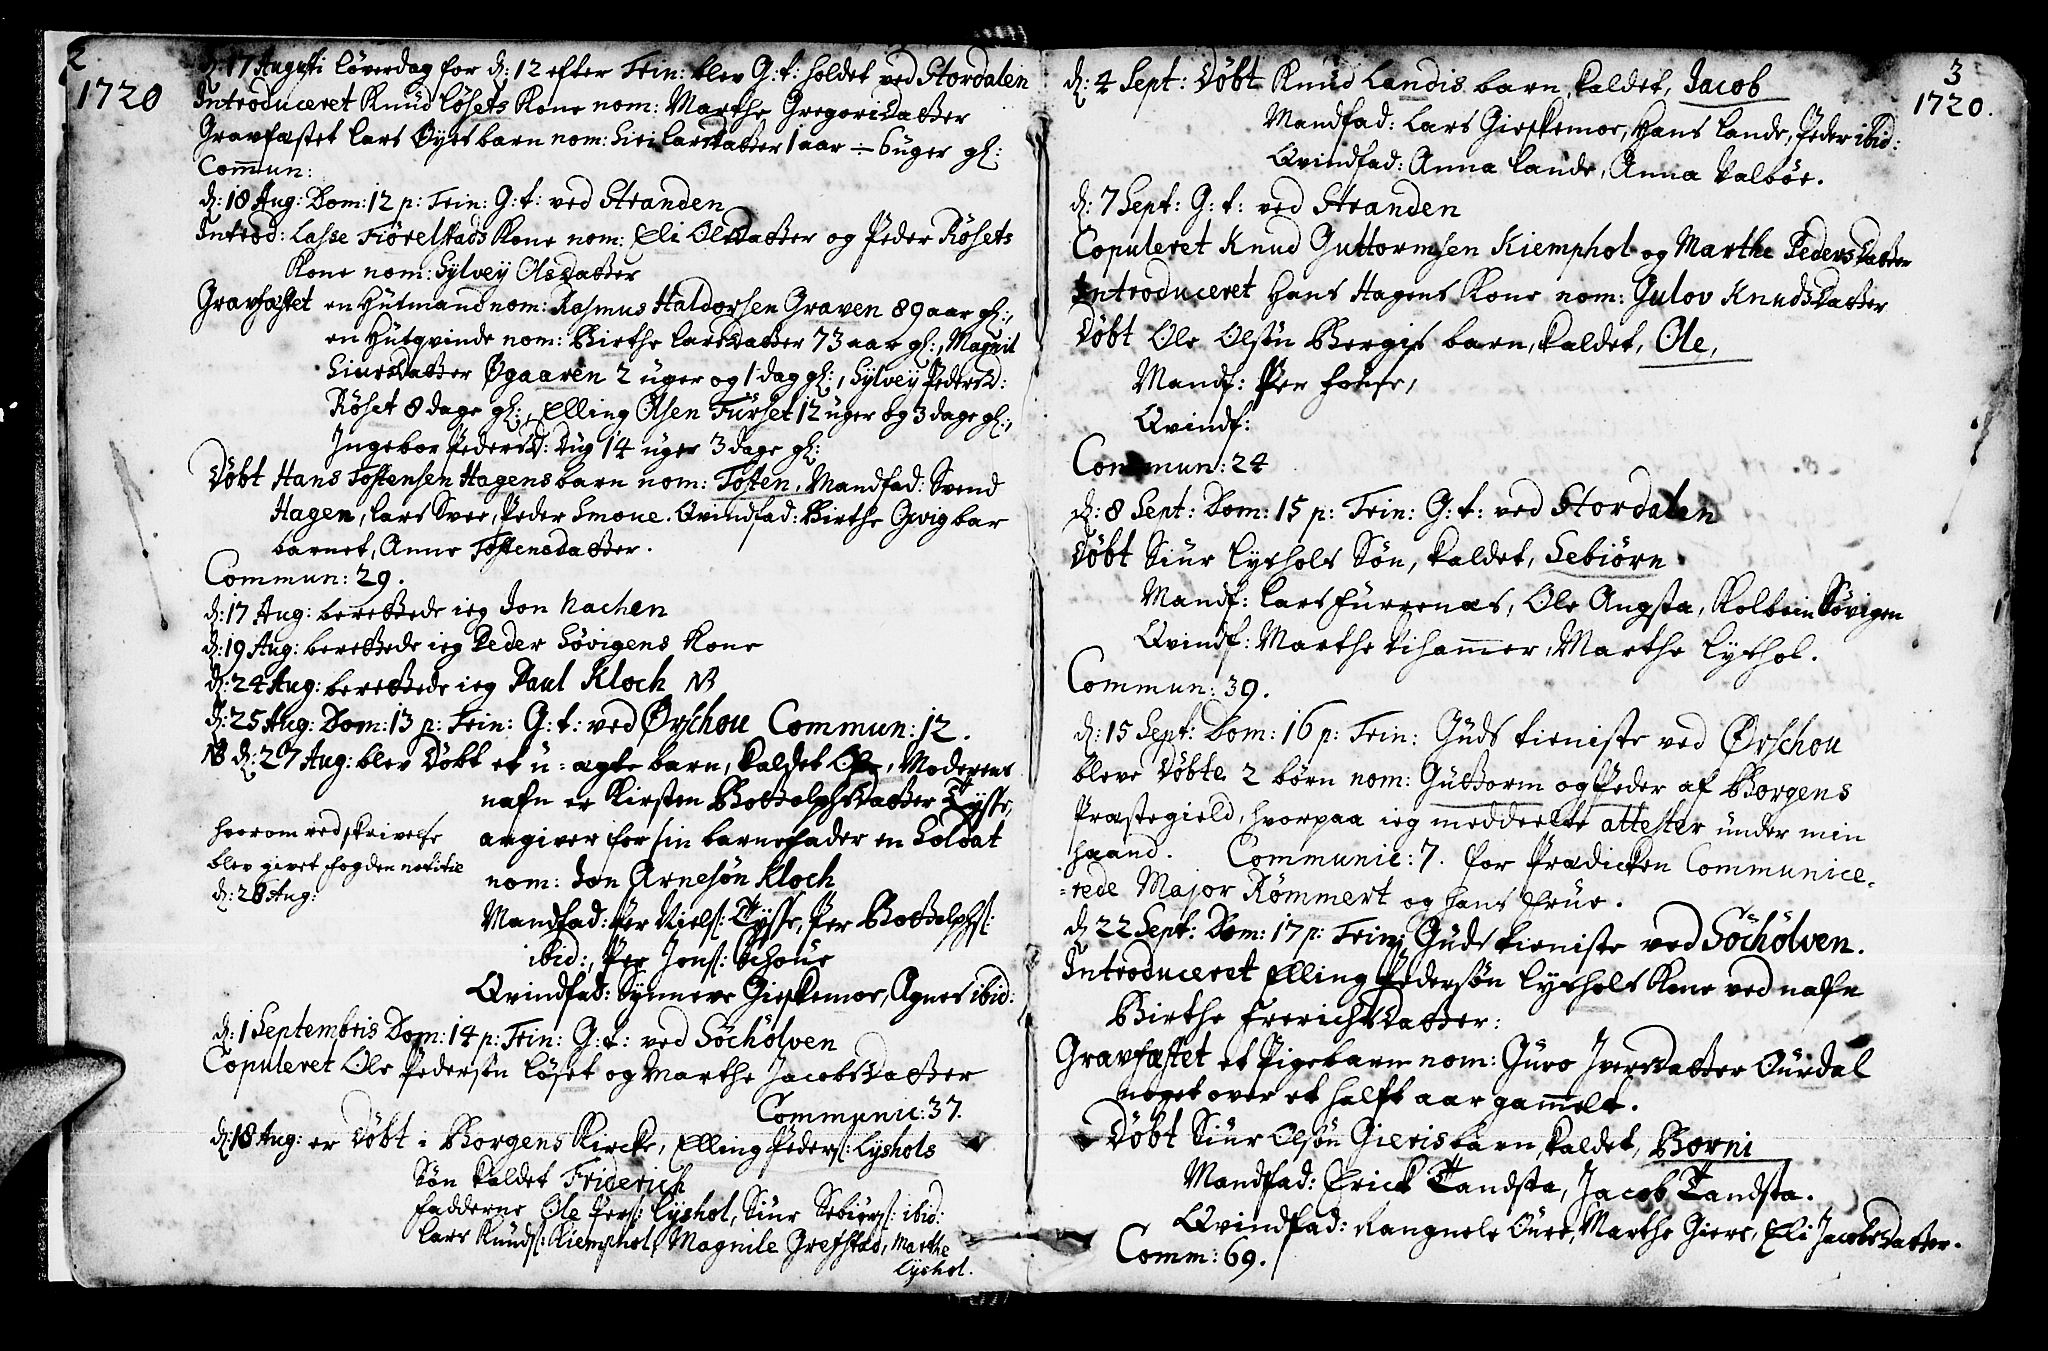 2
1720
d: 17 Augusti löverdag for d: 12 efter Trin: blev G: t: holdet ved Stordalen
Introduceret Knud Løsets Kone nom: Marthe Gregorisdatter
Gravfæstet Lars Øyes barn nom: Siri Larsdatter 1 aar ÷ 6 uger gl:
Com̄un:
d: 18 Aug: Dom: 12 p: Trin: G: t: ved Stranden
Introd: Lasse Fiörelstads Kone nom: Eli Olsdatter og Peder Rösets
Kone nom: Sylvey Olsdatter
Gravfæstet en Husmand nom: Rasmus Haldorsen Graven 89 aar gl:,
en Husqvinde nom: Birthe Larsdatter 73 aar gl:, Magnil
Siursdatter Øgaaren 2 uger og 1 dag gl:, Sylvey Pedersd:
Röset 8 dage gl:, Elling Olsen Furset 12 uger og 3 dage gl:,
Ingebor Pedersd: Dug 14 uger 3 dage gl:
Döbt Hans Tostensen Hagens barn nom: Tosten, Mandfad: Svend
Hagen, Lars Svee, Peder Smoue. Qvindfad: Birthe Qvig bar
barnet, Anne Tostensdatter.
Commun: 29.
d: 17 Aug: berettede ieg Jon Nachen
d: 19 Aug: berettede ieg Peder Sövigens Kone
d: 24 Aug: berettede ieg Paul Kloch NB
d: 25 Aug: Dom: 13 p: Trin: G: t: ved Ørschou Commun: 12.
NB d: 27 Aug: blev Döbt et u-ægte barn, kaldet Ole, Moderens
nafn er Kirsten Bottolphsdatter Tysse,
angiver for sin barnefader en Soldat
nom: Jon Arnesön Kloch
hvorom ved skrivelse
blev givet fogden notitie
d: 28 Aug:
Mandfad: Per Niels: Tysse, Per Bottolphs:
ibid:, Per Jons: Schoue
Qvindfad: Synneve Gieskemoe, Agnes ibid:
d: 1 Septembris Dom: 14 p: Trin: G: t: ved Söchölven
Copuleret Ole Pedersön Løset og Marthe Jacobsdatter
Communic: 37.
d: 18 Aug: er Döbt i Borgens Kircke, Elling Peders: Lyshols
Sön kaldet Friderich
fadderne Ole Pers: Lyshol, Siur Sebiörs: ibid:
Lars Knuds: Kiemphol, Magnile Grefstad, Marthe
Lyshol.
3
1720.
d: 4 Sept: Döbt Knud Landis barn, kaldet, Jacob
Mandfad: Lars Gieskemoe, Hans Lande, Peder ibid:
Qvindfad: Anna Lande, Anna Valböe.
d: 7 Sept: G: t: ved Stranden
Copuleret Knud Guttormsen Kiemphol og Marthe Pedersdatter
Introduceret Hans Hagens Kone nom: Gulov Knudsdatter
Döbt Ole Olsön Bergis barn, kaldet, Ole,
Mandf: Per
Qvindf:
Commun: 24
d: 8 Sept: Dom: 15 p: Trin: G: t: ved Stordalen
Döbt Siur Lyshols Sön, kaldet, Sebiörn.
Mandf: Lars Furrenæs, Ole Angsta, Kolbein Sövigen
Qvindf: Marthe Vikam̄er, Marthe Lyshol.
Commun: 39.
d: 15 Sept: Dom: 16 p: Trin: Guds tieniste ved Ørschou
bleve Döbte 2 börn nom: Guttorm og Peder af Borgens
Præstegield, hvorpaa ieg meddeelte attester under min
haand. Communic: 7. for Prædicken Communice-
-rede Major Römmert og hans frue.
d 22 Sept: Dom: 17 p: Trin: Guds tieniste ved Söchölven.
Introduceret Elling Pedersön Lyshols Kone ved nafn
Birthe Frerichsdatter:
Gravfæstet et Pigebarn nom: Guro Iversdatter Ourdal
noget over et halft aar gam̄elt.
Döbt Siur Olsön Gieris barn, kaldet, Borni
Mandfad: Erick Tandsta, Jacob Tandsta.
Qvindfad: Rangnele Oure, Marthe Giere, Eli Jacobsdatter.
Comm: 69.